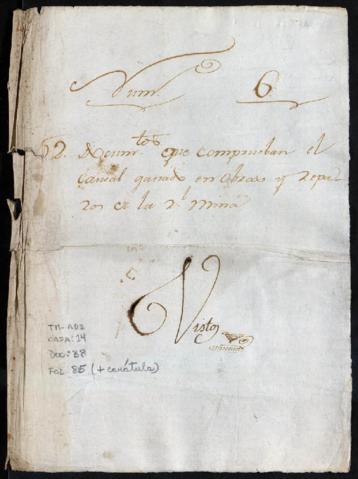 Num. 6
52. Docum.tos que comprueban el
Caudal gastado en obras y repa-
ros de la R.l Mina
Visto
TM-AD2
CAJA: 14
DOC: 88
FOL 85 (+ carátula)